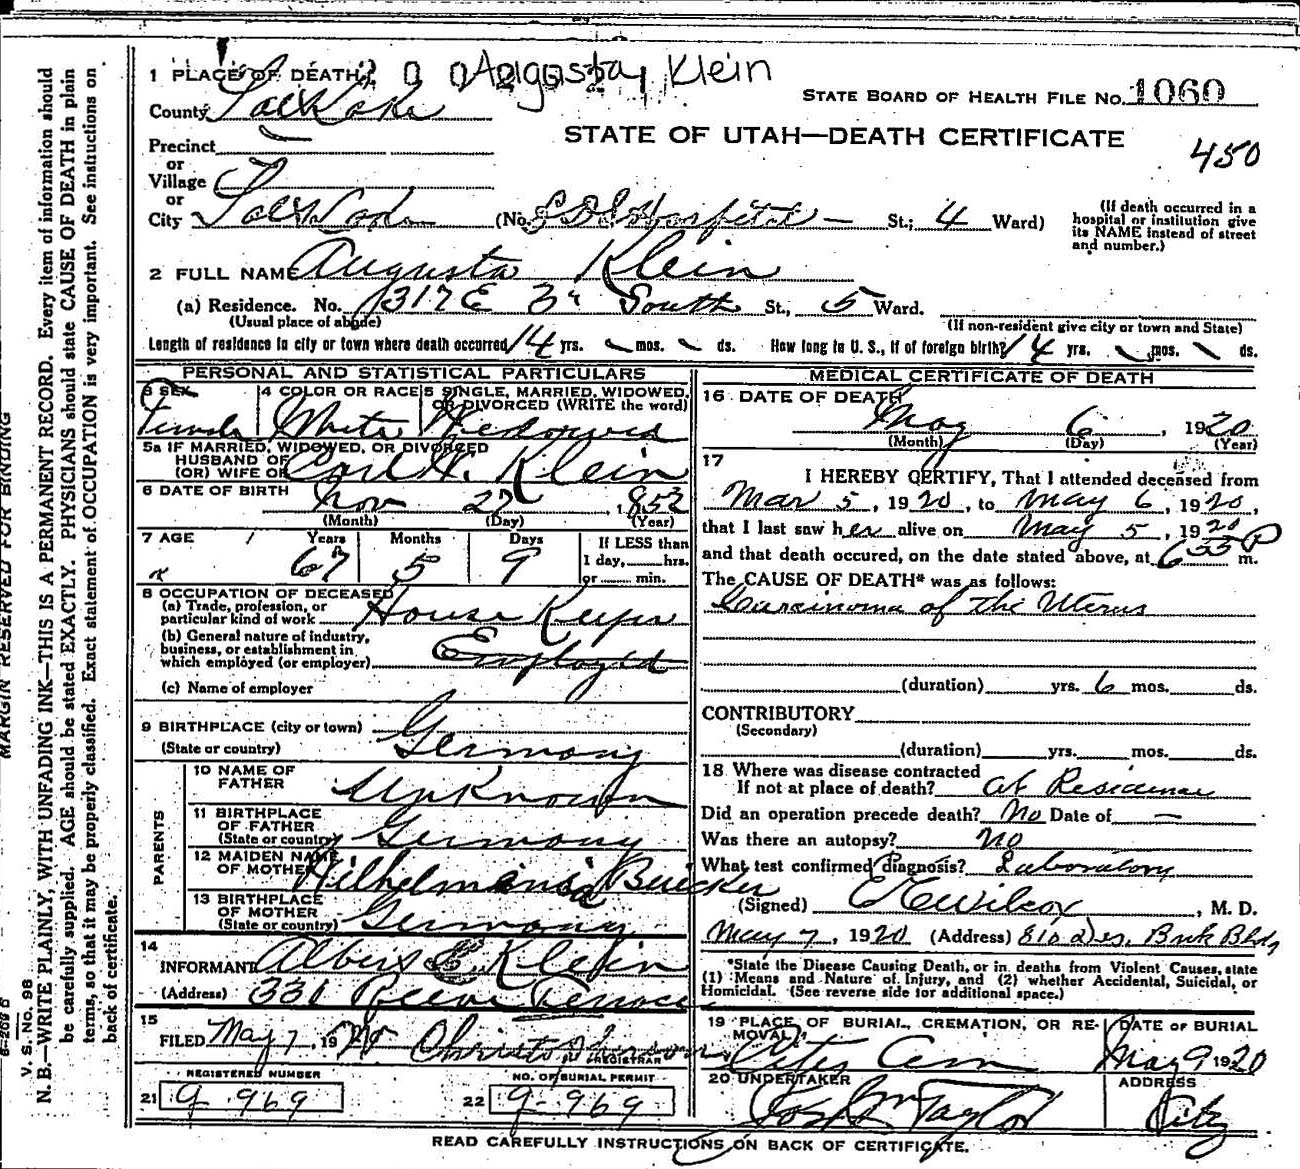 Augusta Klein
1 PLACE OF DEATH
STATE BOARD OF HEALTH FILE No. 1060
County Salt Lake
STATE OF UTAH—DEATH CERTIFICATE
450
Precinct
or
Village
or
City Salt Lake (No. L D S Hospital — St.; 4 Ward)
(If death occurred in a hospital or institution give its NAME instead of street and number.)
2 FULL NAME Augusta Klein
(a) Residence. No. 1317 E 3r South St., 5 Ward.
(Usual place of abode)
(If non-resident give city or town and State)
Length of residence in city or town where death occurred 14 yrs. mos. ds. How long in U. S., if of foreign birth? 14 yrs. mos. ds.
PERSONAL AND STATISTICAL PARTICULARS
3 SEX Female
4 COLOR OR RACE White
5 SINGLE, MARRIED, WIDOWED, OR DIVORCED (WRITE the word) Widowed
5a IF MARRIED, WIDOWED, OR DIVORCED
HUSBAND OF
(OR) WIFE OF Carl H. Klein
6 DATE OF BIRTH Nov 27, 1852
(Month) (Day) (Year)
7 AGE Years 67 Months 5 Days 9
If LESS than
1 day, hrs.
or min.
8 OCCUPATION OF DECEASED
(a) Trade, profession, or
particular kind of work House Keeper
(b) General nature of industry,
business, or establishment in
which employed (or employer) Employed
(c) Name of employer
9 BIRTHPLACE (city or town)
(State or country) Germany
PARENTS
10 NAME OF
FATHER Unknown
11 BIRTHPLACE
OF FATHER
(State or country) Germany
12 MAIDEN NAME
OF MOTHER Wilhelmina
13 BIRTHPLACE
OF MOTHER
(State or country) Germany
14
INFORMANT Klein
(Address) 331 Terrace
15
FILED May 7, 1920
REGISTRAR
REGISTERED NUMBER
21 9-969
NO. OF BURIAL PERMIT
22 9-969
MEDICAL CERTIFICATE OF DEATH
16 DATE OF DEATH
May 6, 1920
(Month) (Day) (Year)
17
I HEREBY CERTIFY, That I attended deceased from
Mar 5, 1920, to May 6, 1920,
that I last saw her alive on May 5, 1920
and that death occured, on the date stated above, at 6 55 P m.
The CAUSE OF DEATH* was as follows:
Carcinoma of the Uterus
(duration) yrs. 6 mos. ds.
CONTRIBUTORY
(Secondary)
(duration) yrs. mos. ds.
18 Where was disease contracted
If not at place of death? at Residence
Did an operation precede death? No Date of —
Was there an autopsy? No
What test confirmed diagnosis? Laboratory
(Signed) Wilcox, M. D.
May 7, 1920 (Address) 810 Des. Bnk Bldg
*State the Disease Causing Death, or in deaths from Violent Causes, state
(1) Means and Nature of Injury, and (2) whether Accidental, Suicidal, or
Homicidal. (See reverse side for additional space.)
19 PLACE OF BURIAL, CREMATION, OR REMOVAL Cem
DATE OF BURIAL
May 9 1920
20 UNDERTAKER
Taylor
ADDRESS
City
READ CAREFULLY INSTRUCTIONS ON BACK OF CERTIFICATE.
MARGIN RESERVED FOR BINDING
V. S. No. 98
N. B.—WRITE PLAINLY, WITH UNFADING INK—THIS IS A PERMANENT RECORD. Every item of information should
be carefully supplied. AGE should be stated EXACTLY. PHYSICIANS should state CAUSE OF DEATH in plain
terms, so that it may be properly classified. Exact statement of OCCUPATION is very important. See instructions on
back of certificate.